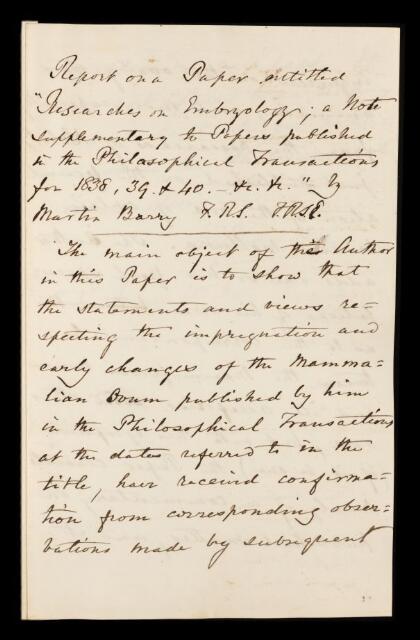 Report on a Paper entitled
"Researches on Embryology; a Note
supplementary to Papers published
in the Philosophical Transactions
for 1838, 39. & 40. - &c. &c." by
Martin Barry F.R.S. F.R.S.E.
The main object of the Author
in this Paper is to show that
the statements and views re=
specting the impregnation and
early changes of the Mamma=
lian Ovum published by him
in the Philosophical Transactions
at the dates referred to in the
title, have received confirma=
tion from corresponding obser=
vations made by subsequent